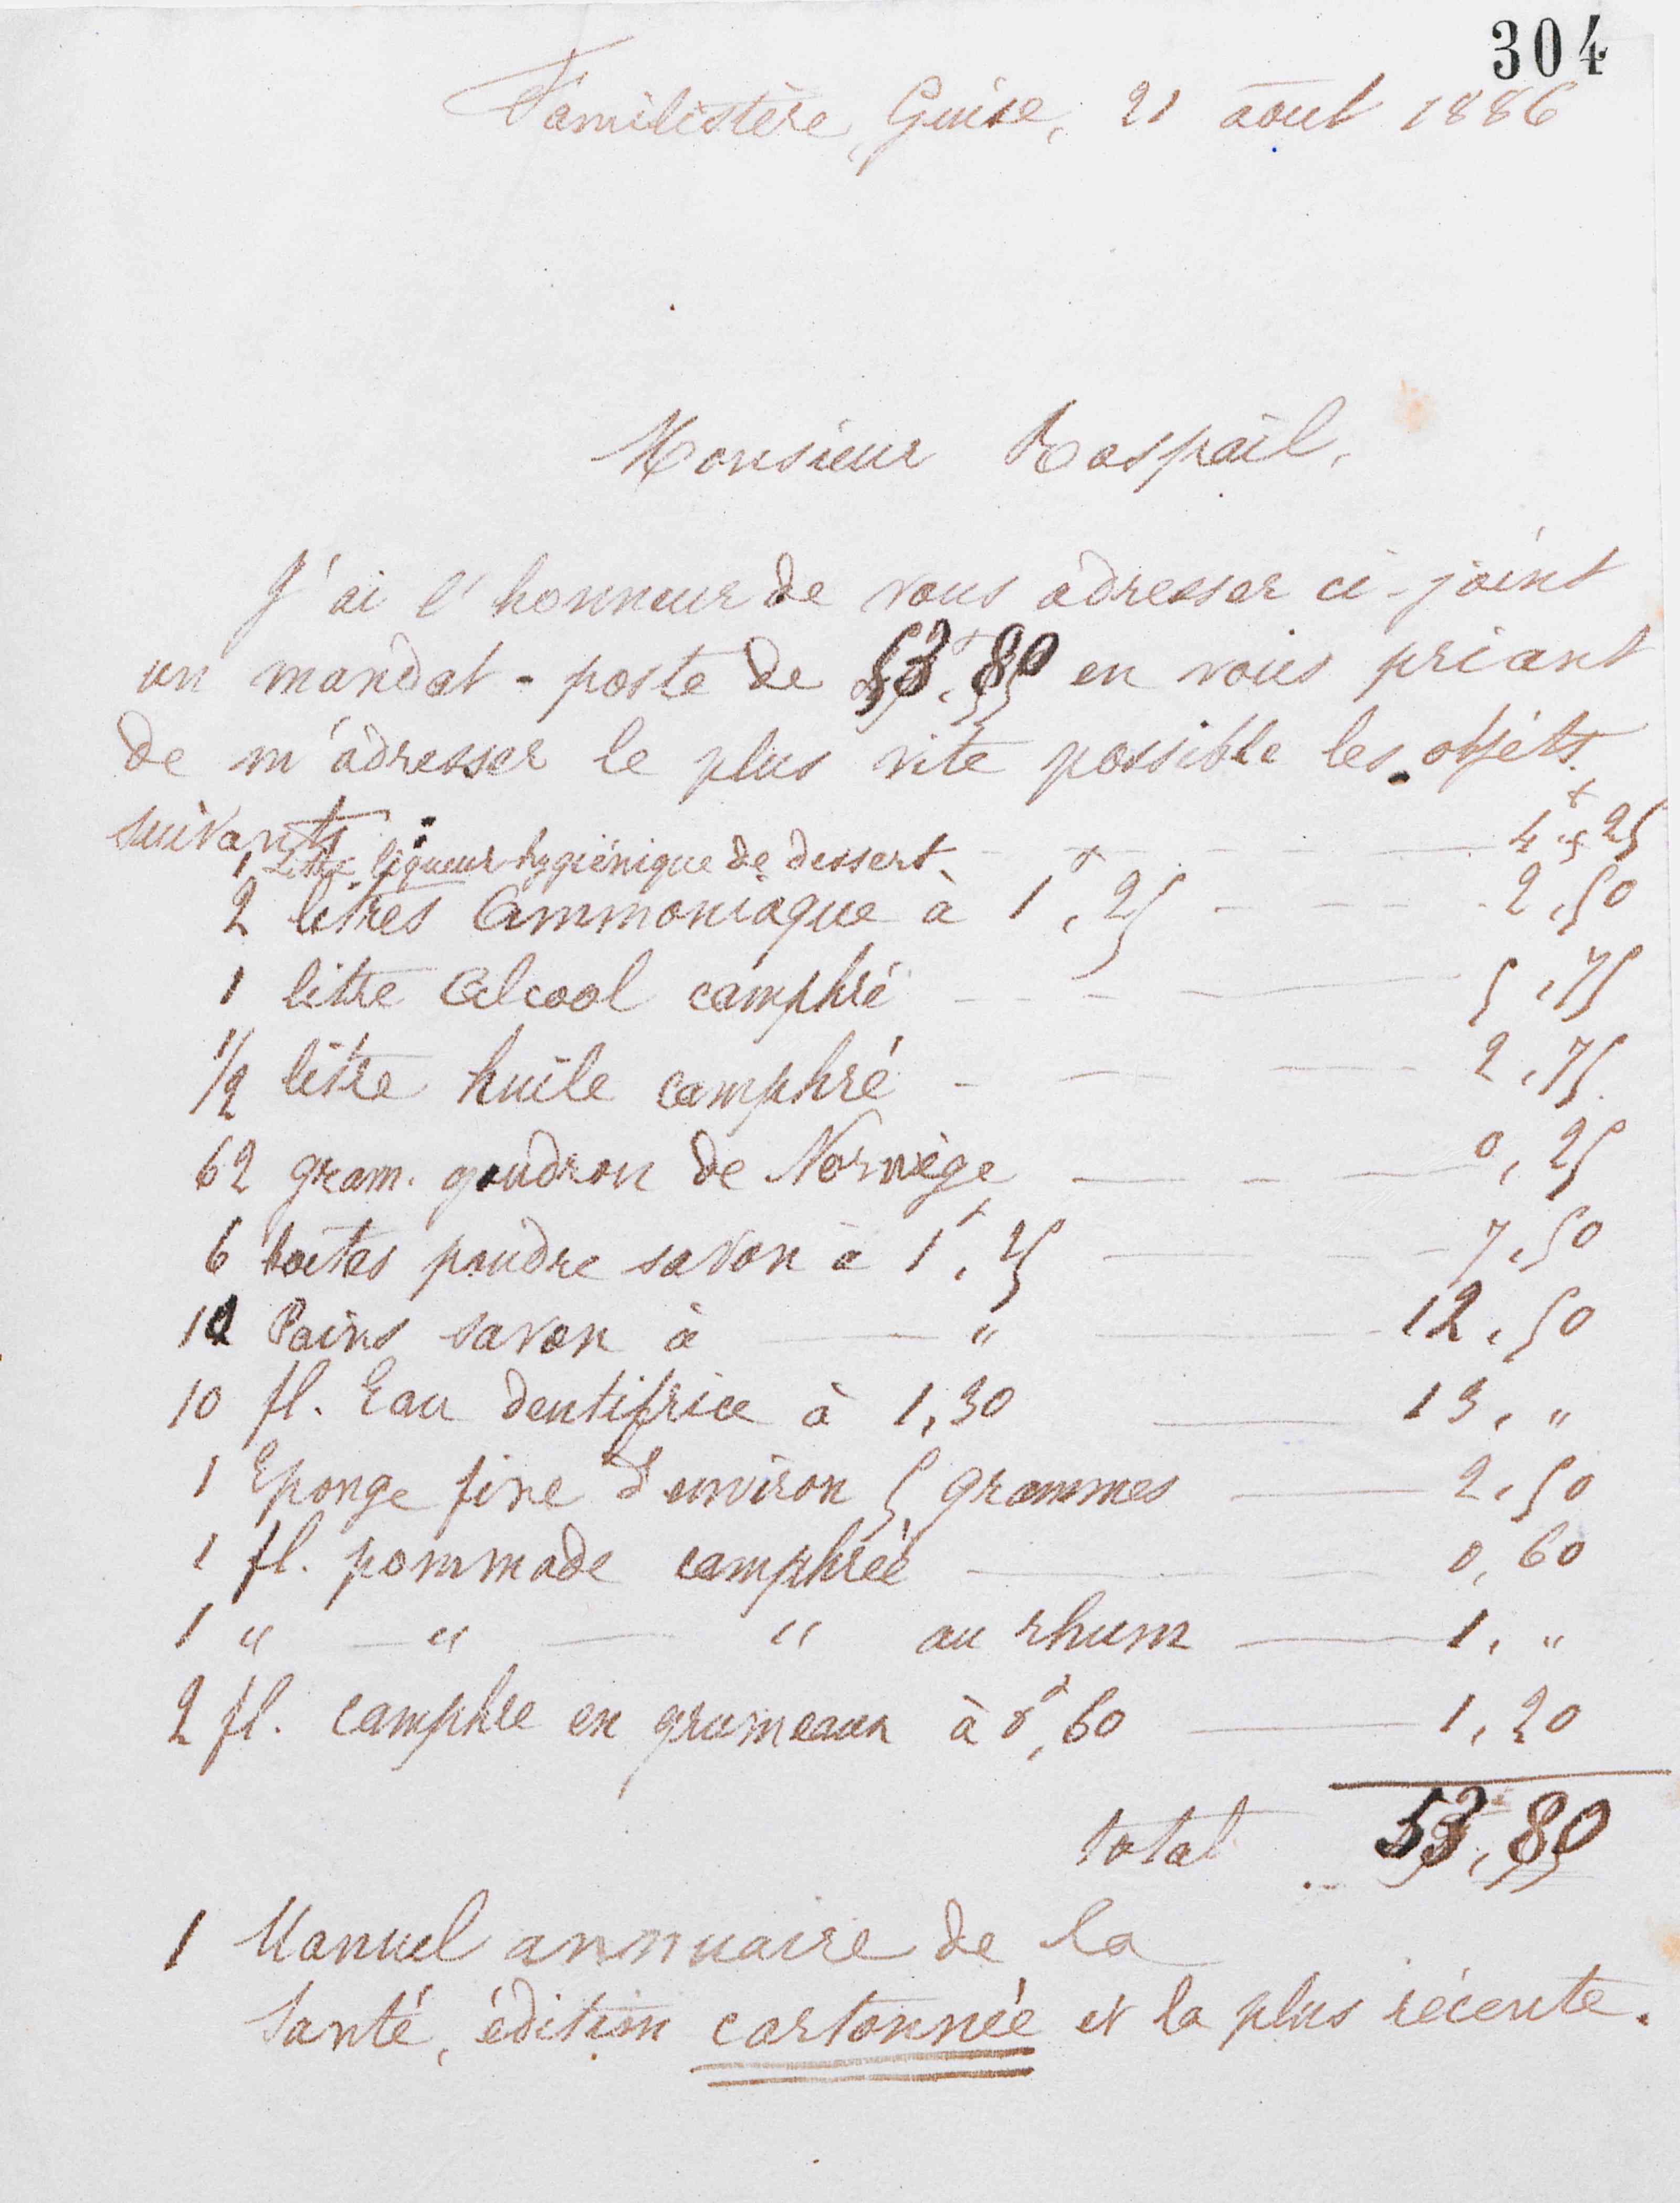 304
Familistère, Guise, 21 août 1886
Monsieur Raspail,
J'ai l'honneur de vous adresser ci-joint
un mandat-poste de 53f,80 en vous priant
de m'adresser le plus vite possible les objets
suivants :
1 Litre liqueur hygiénique de dessert, - - - - 4f,25
2 litres Ammoniaque à 1f,25 - - - - 2,50
1 litre Alcool camphré - - - 5,75
1/2 litre huile camphré - - - 2,75
62 gram. goudron de Norwège - - - 0,25
6 boites poudre savon à 1f,25 - - - 7,50
10 Pains savon à — " — 12,50
10 fl. Eau dentifrice à 1,30 — 13, "
1 Eponge fine d'environ 5 grammes — 2,50
1 fl. pommade camphrée — 0,60
1 " — " — " au rhum — 1, "
2 fl. camphre en grumeaux à 0f,60 — 1,20
total 53,80
1 Manuel annuaire de la
Santé, édition cartonnée et la plus récente.